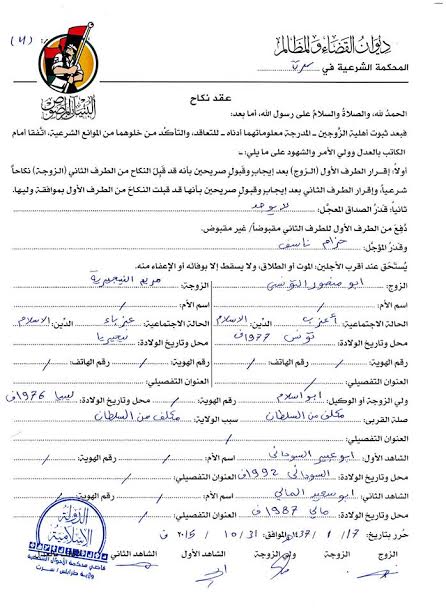 ديوان القضاء والمظالم
المحكمة الشرعية في سرت
البنيان المرصوص
عقد نكاح
الحمدُ لله، والصلاةُ والسلامُ على رسول الله، أما بعد:
فبعد ثبوت أهلية الزوجين - المدرجة معلوماتهما أدناه - للتعاقد، والتأكد من خلوهما من الموانع الشرعية، اتّفقا أمام
الكاتب بالعدل وولي الأمر والشهود على ما يلي:
أولاً: إقرار الطرف الأول (الزوج) بعد إيجابٍ وقبولٍ صريحين بأنه قد قَبِلَ النكاح من الطرف الثاني (الزوجة) نكاحاً
شرعياً، وإقرار الطرف الثاني بعد إيجاب وقبول صريحين بأنها قد قبلت النكاح من الطرف الأول بموافقة وليها.
ثانياً: قدرُ الصداق المعجّل: لا يوجد
دُفِعَ من الطرف الأول للطرف الثاني مقبوضاً/ غير مقبوض.
وقدرُ المؤجّل: حزام ناسف
يُستَحق عند أقرب الأجلين: الموت أو الطلاق، ولا يسقط إلا بوفائه أو الإعفاء منه.
الزوج: ابو منصور التونسي الزوجة: مريم النيجيرية
اسم الأم: / اسم الأم: /
الحالة الاجتماعية: أعزب الدّين: الاسلام الحالة الاجتماعية: عزباء الدّين: الاسلام
محل وتاريخ الولادة: تونس 1977ف محل وتاريخ الولادة: نيجيريا
رقم الهوية: / رقم الهاتف: / رقم الهوية: / رقم الهاتف: /
العنوان التفصيلي: / العنوان التفصيلي: /
ولي الزوجة أو الوكيل: ابو اسلام رقم الهوية: / محل وتاريخ الولادة: ليبيا 1976ف
صلة القربى: مكلف من السلطان سبب الولاية: مكلف من السلطان
العنوان التفصيلي: /
الشاهد الأول: ابو عبير السوداني اسم الأم: / رقم الهوية: /
محل وتاريخ الولادة: السوداني 1992ف العنوان التفصيلي: /
الشاهد الثاني: ابو سعيد المالي اسم الأم: / رقم الهوية: /
محل وتاريخ الولادة: مالي 1987ف العنوان التفصيلي: /
حُرر بتاريخ: 17 / 1 / 1437هـ الموافق: 31 / 10 / 2015 ف
الزوج الزوجة ولي الزوجة الشاهد الأول الشاهد الثاني
الدولة
الإسلامية
قاضي محكمة الأحوال الشخصية
ولاية طرابلس / سرت